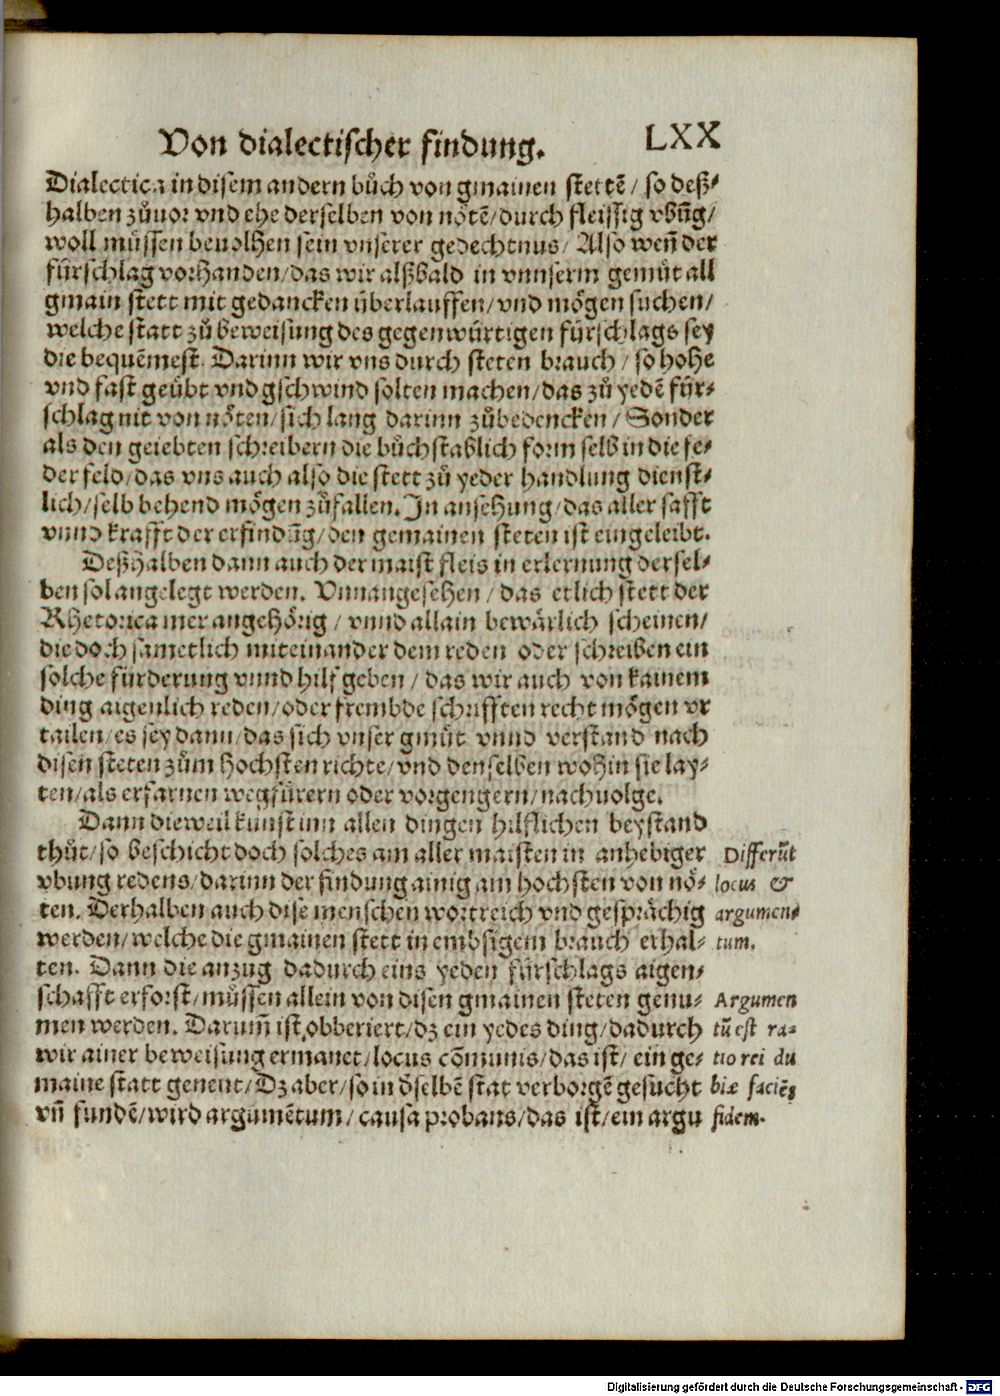 Von dialectischer findung. LXX
Dialectica in disem andern bůch von gmainen stettē / so deß⸗
halben zůuor vnd ehe derselben von nötē/durch fleissig vbūg/
woll müssen beuolhen sein vnserer gedechtnus/ Also weñ der
fürschlag vorhanden/das wir alßbald in vnnserm gemüt all
gmain stett mit gedancken überlauffen/vnd mögen suchen/
welche statt zů beweisung des gegenwürtigen fürschlags sey
die bequēmest. Darinn wir vns durch steten brauch / so hohe
vnd fast geübt vnd gschwind solten machen/das zů yedē für⸗
schlag nit von nöten/sich lang darinn zůbedencken / Sonder
als den geiebten schreibern die bůchstablich form selb in die fe⸗
der feld/das vns auch also die stett zů yeder handlung dienst⸗
lich/selb behend mögen zůfallen. In ansehung/das aller safft
vnnd krafft der erfindūg/den gemainen steten ist eingeleibt.
Deßhalben dann auch der maist fleis in erlernung dersel⸗
ben sol angelegt werden. Vnnangesehen / das etlich stett der
Rhetorica mer angehörig / vnnd allain bewärlich scheinen/
die doch sametlich miteinander dem reden oder schreiben ein
solche fürderung vnnd hilf geben / das wir auch von kainem
ding aigenlich reden/oder frembde schrifften recht mögen vr
tailen/es sey dann/das sich vnser gmüt vnnd verstand nach
disen steten zům hochsten richte/vnd denselben wohin sie lay⸗
ten/als erfarnen wegfürern oder vorgengern/nachuolge.
Dann dieweil kunst inn allen dingen hilflichen beystand
thůt/so beschicht doch solches am aller maisten in anhebiger
vbung redens/darinn der findung ainig am hochsten von nö⸗
ten. Derhalben auch dise menschen wortreich vnd gesprächig
werden/welche die gmainen stett in embsigem brauch erhal⸗
ten. Dann die anzug dadurch eins yeden fürschlags aigen⸗
schafft erforst/müssen allein von disen gmainen steten genu⸗
men werden. Darum̄ ist obberiert/dz ein yedes ding/dadurch
wir ainer beweisung ermanet/locus cōmunis/das ist/ ein ge⸗
maine statt genent/Dz aber/so in d̄selbē stat verborgē gesucht
vn̄ fundē/wird argumētum/causa probans/das ist/ein argu
Differūt
locus &
argumen⸗
tum.
Argumen
tū est ra⸗
tio rei du
biæ faciēs
fidem.
Digitalisierung gefördert durch die Deutsche Forschungsgemeinschaft - DFG